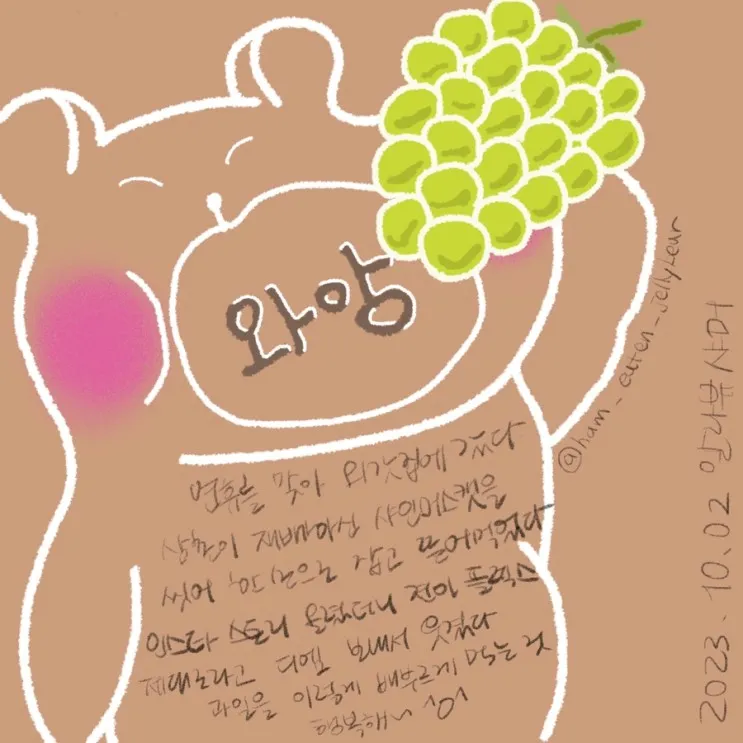 와앙
연휴를 맞아 외갓집에 갔다
삼촌이 재배하신 샤인머스캣을
씻어 한 손으로 잡고 뜯어먹었다
인스타 스토리 올렸더니 진이 플렉스
제대로라고 디엠 보내서 웃겼다
과일을 이렇게 배부르게 먹는 것
행복해
@ham_auten_jellyleur
2023.10.02 알라뷰샤머